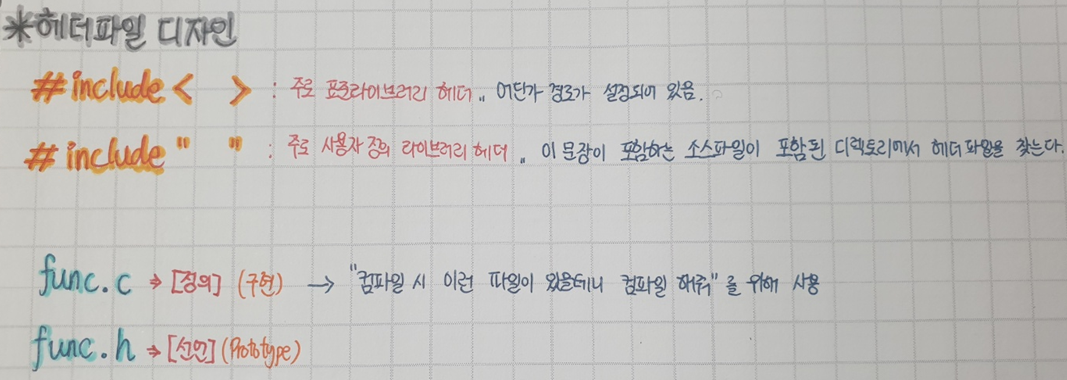 *헤더파일 디자인
#include < > : 주로 표준라이브러리 헤더.. 어딘가 경로가 설정되어 있음.
#include " " : 주로 사용자 정의 라이브러리 헤더.. 이 문장이 포함하는 소스파일이 포함된 디렉토리에서 헤더파일을 찾는다.
func.c → [정의] (구현) → "컴파일 시 이런 파일이 있을테니 컴파일 해줘"를 위해 사용
func.h → [선언] (Prototype)